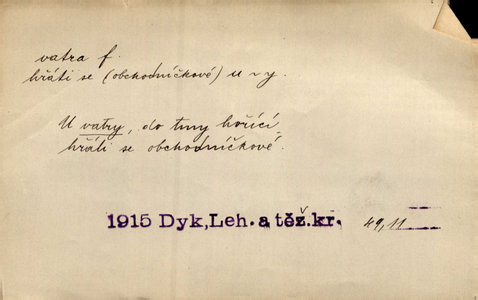 vatra f.
hřáti se (obchodníčkové) u v-y.
U vatry, do tmy hořící,
hřáli se obchodníčkové.
1915 Dyk, Leh. a těž. kr. 49, 11